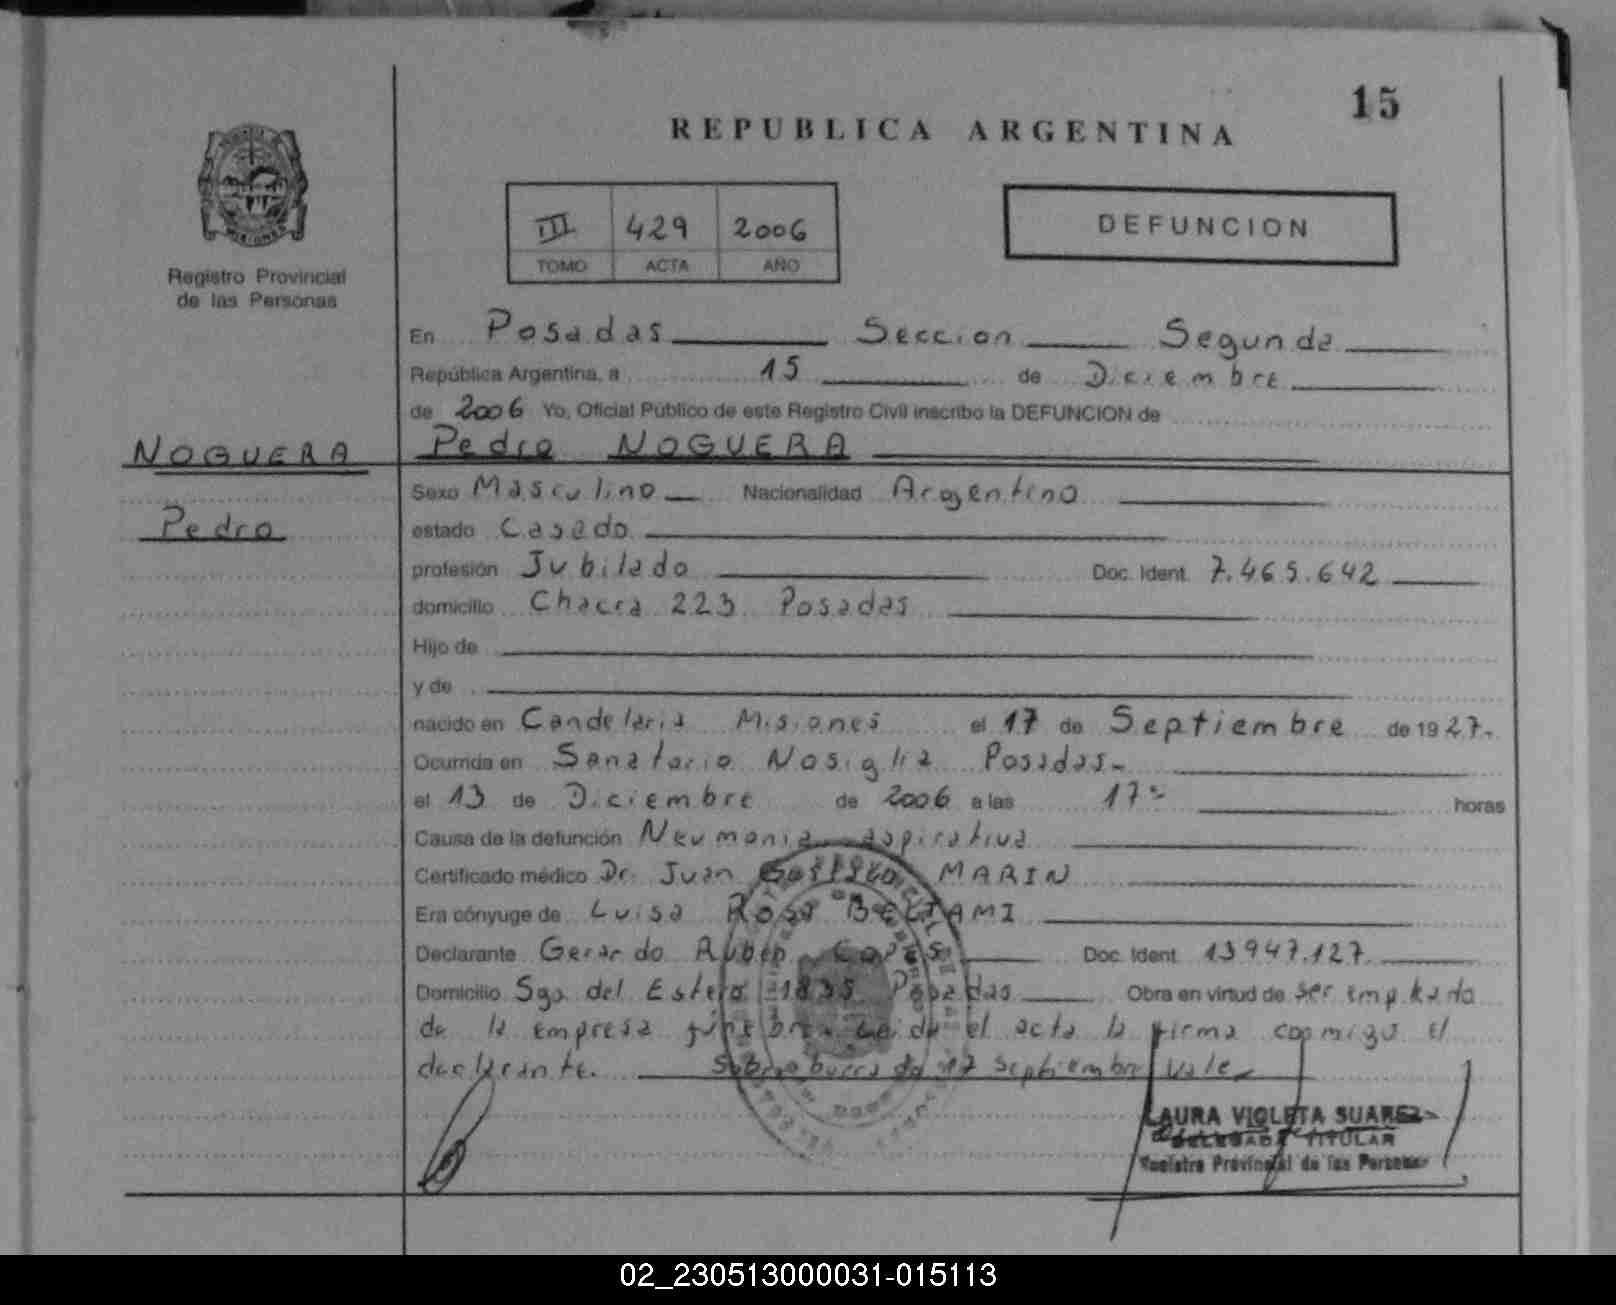 15
REPUBLICA ARGENTINA
III 429 2006
TOMO ACTA AÑO
DEFUNCION
Registro Provincial
de las Personas
En Posadas Seccion Segunda
República Argentina, a 15 de Diciembre
de 2006 Yo, Oficial Público de este Registro Civil inscribo la DEFUNCION de
NOGUERA Pedro NOGUERA
Pedro
Sexo Masculino Nacionalidad Argentino
estado Casado
profesión Jubilado Doc. Ident. 7.465.642
domicilio Chacra 223 Posadas
Hijo de
y de
nacido en Candelaria Misiones el 17 de Septiembre de 1927.
Ocurrida en Sanatorio Nosiglia Posadas-
el 13 de Diciembre de 2006 a las 17 horas
Causa de la defunción Neumonia aspirativa
Certificado médico Dr. Juan MARIN
Era cónyuge de Luisa Rosa
Declarante Gerardo Ruben Doc. Ident. 13947.127
Domicilio Sgo. del Estero 1835 Posadas Obra en virtud de ser empleado
de la empresa funebre. Leida el acta la firma conmigo el
declarante. Sobreborrado 17 septiembre Vale
LAURA VIOLETA SUAREZ
DELEGADA TITULAR
Registro Provincial de las Personas
02_230513000031-015113